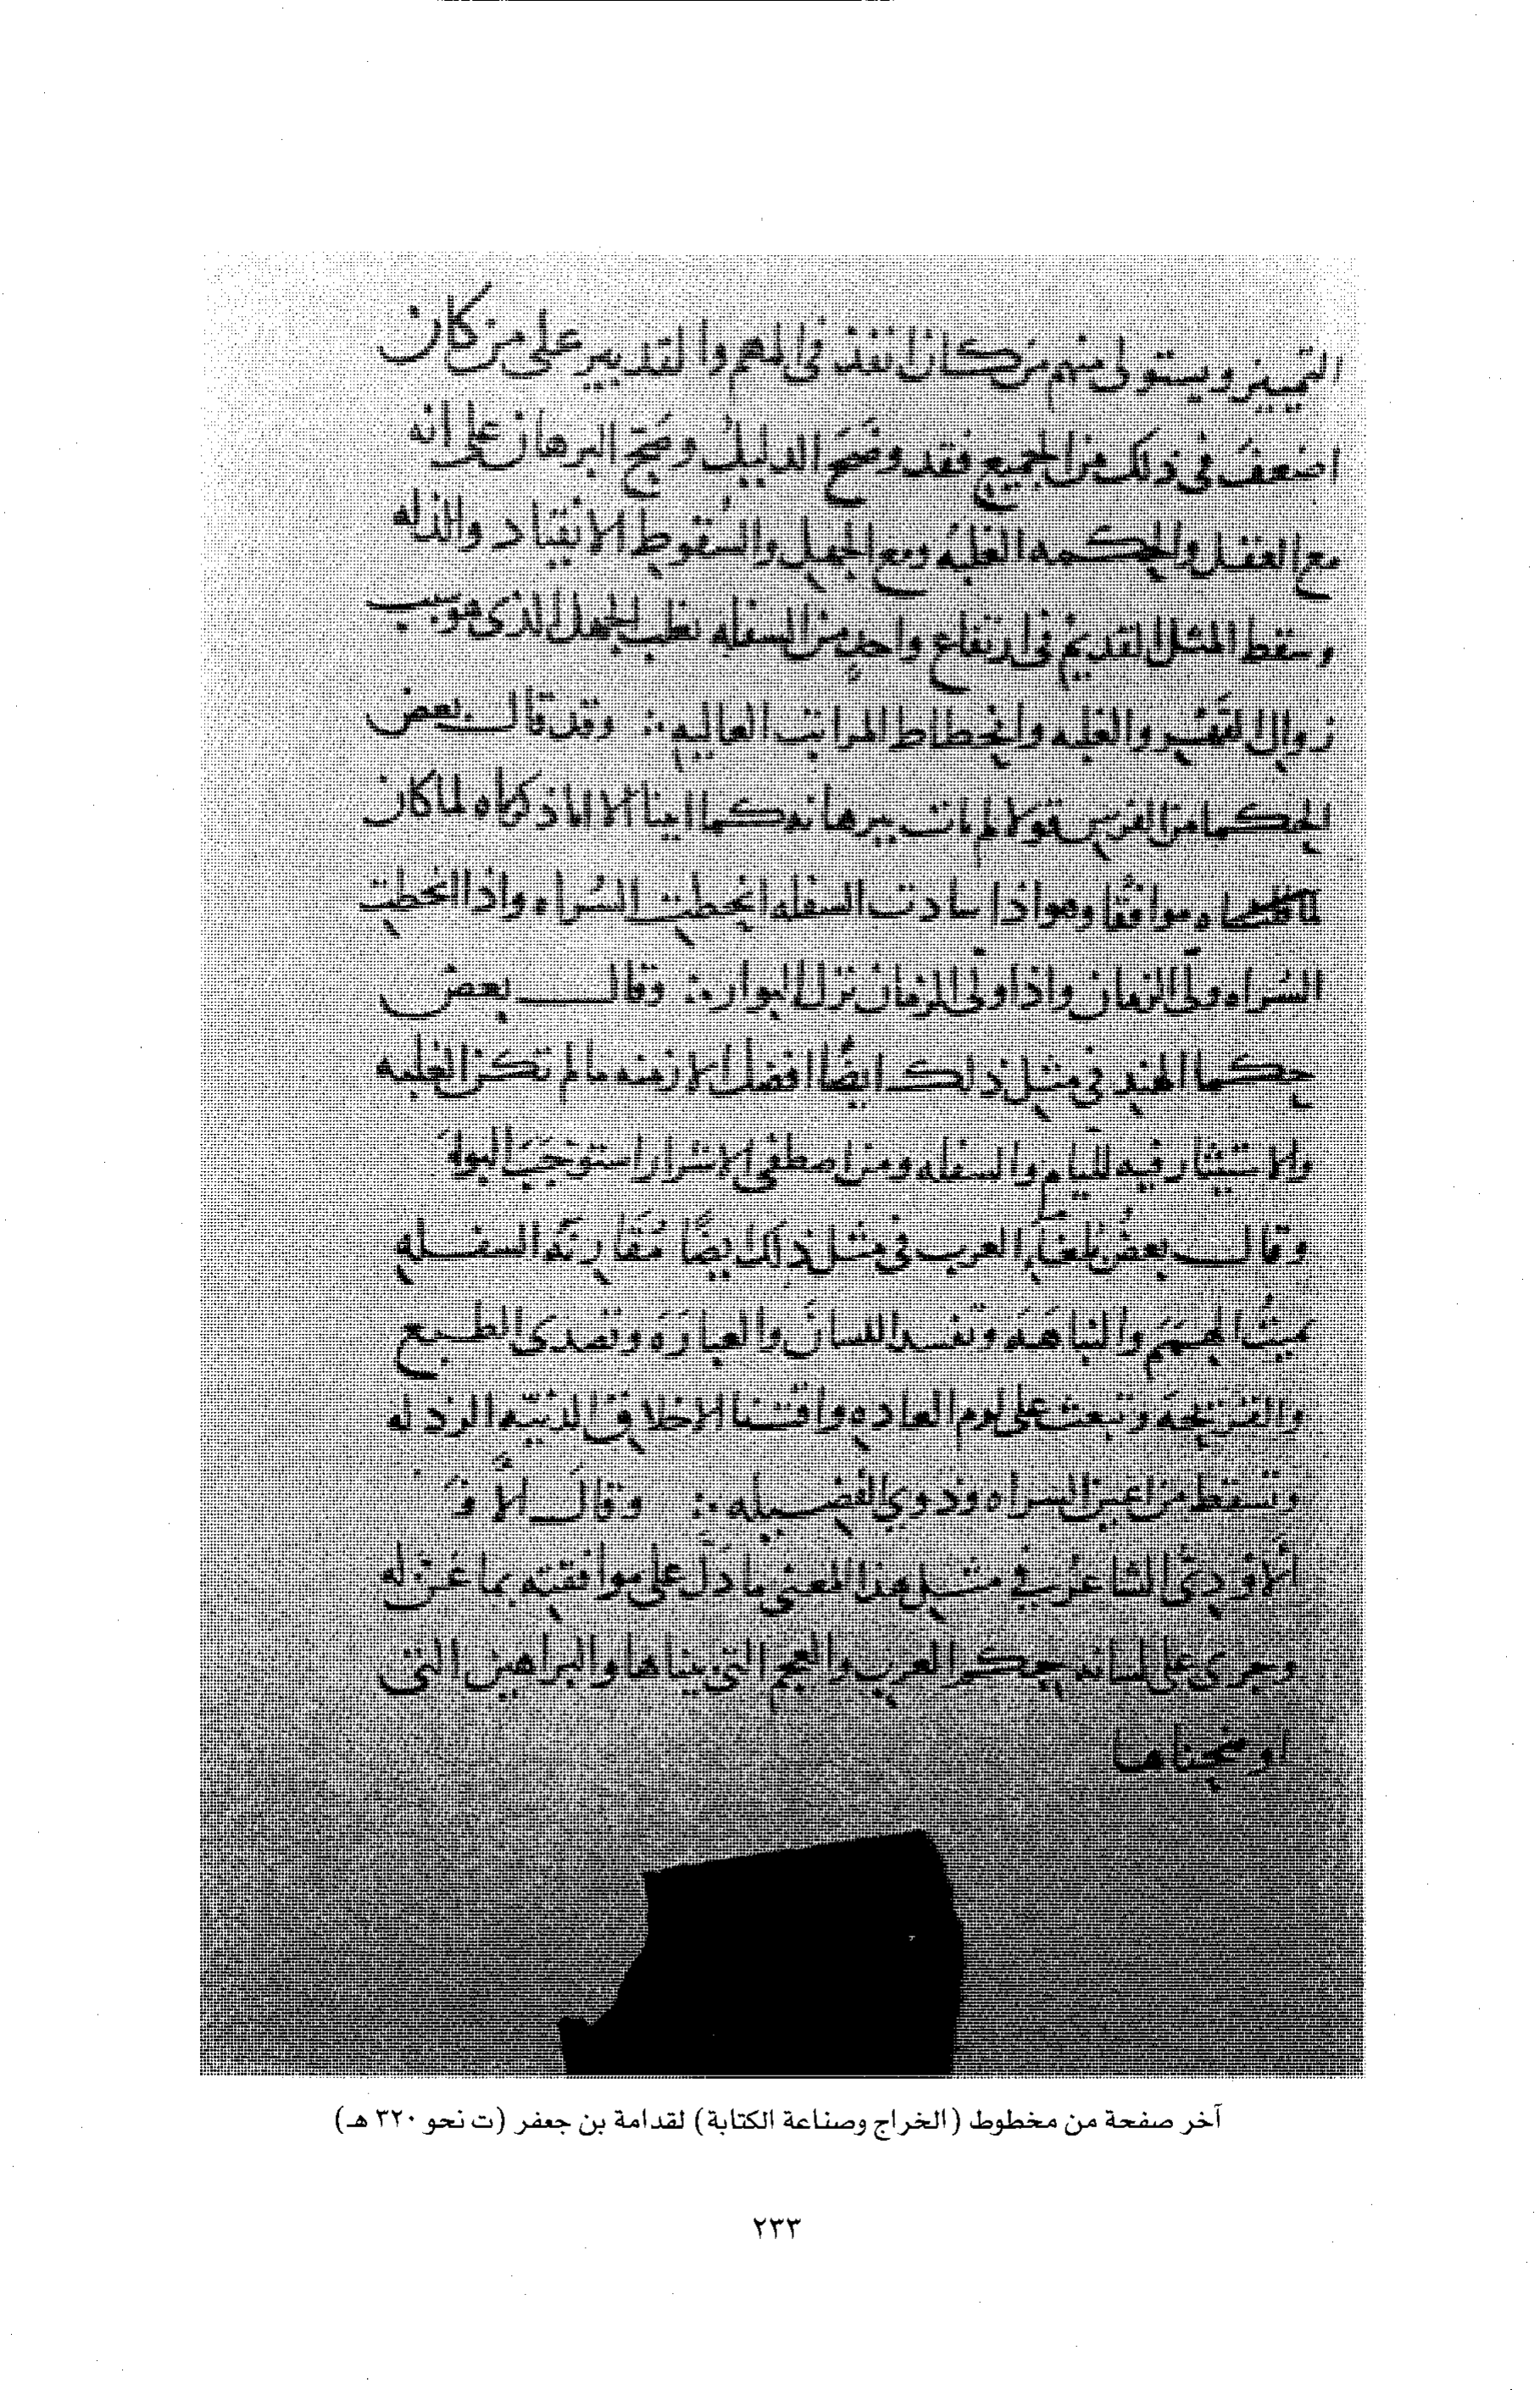 التمييز ويستولى منهم من كان انفذ فى الفهم والتدبير على من كان
اضعف فى ذلك من الجميع فقد وضح الدليل وصحّ البرهان على انه
مع العقل والحكمه الغلبه ومع الجهل والسقوط الانقياد والذله
وسقط المثل القديم فى ارتفاع واحدٍ من السفله الجهل الذى هو سبب
زوال والغلبه وانحطاط المراتب العاليه ∴ وقد قال بعض
الحكما من الفرس قولا لم يات ببرهانه كما اتينا الا لما ذكرناه لما كان
موافقًا وهو اذا سادت السفله انحطت السُراه واذا انحطت
السُراه ولّى الزمان واذا ولّى الزمان نزل البوار ∴ وقال بعض
حكما الهند فى مثل ذلك ايضًا افضل الازمنه ما لم تكن الغلبه
والاستيثار فيه لليام والسفله ومن اصطفى الاشرار استوجب البوار
وقال بعضُ بلغآءِ العرب فى مثل ذلك ايضًا مُقَارنَه السفله
تميتُ الهمم والنباهَه وتفسد اللسان والعبارَه وتصدى الطبع
والقريحه وتبعث على لوم العاده واقتنا الاخلاق الدنيّه الرذله
وتسقط من اعين السراه وذوي الفضيله ∴ وقال الاَّ فو
الافودىُّ الشاعرُ فى مثل هذا المعنى ما دَلَّ على موافقته بما
وجرى على لسانه حكم العرب والعجم التى بيناها والبراهين التى
اوضحناها
آخر صفحة من مخطوط (الخراج وصناعة الكتابة) لقدامة بن جعفر (ت نحو ٣٢٠ هـ)
٢٣٣